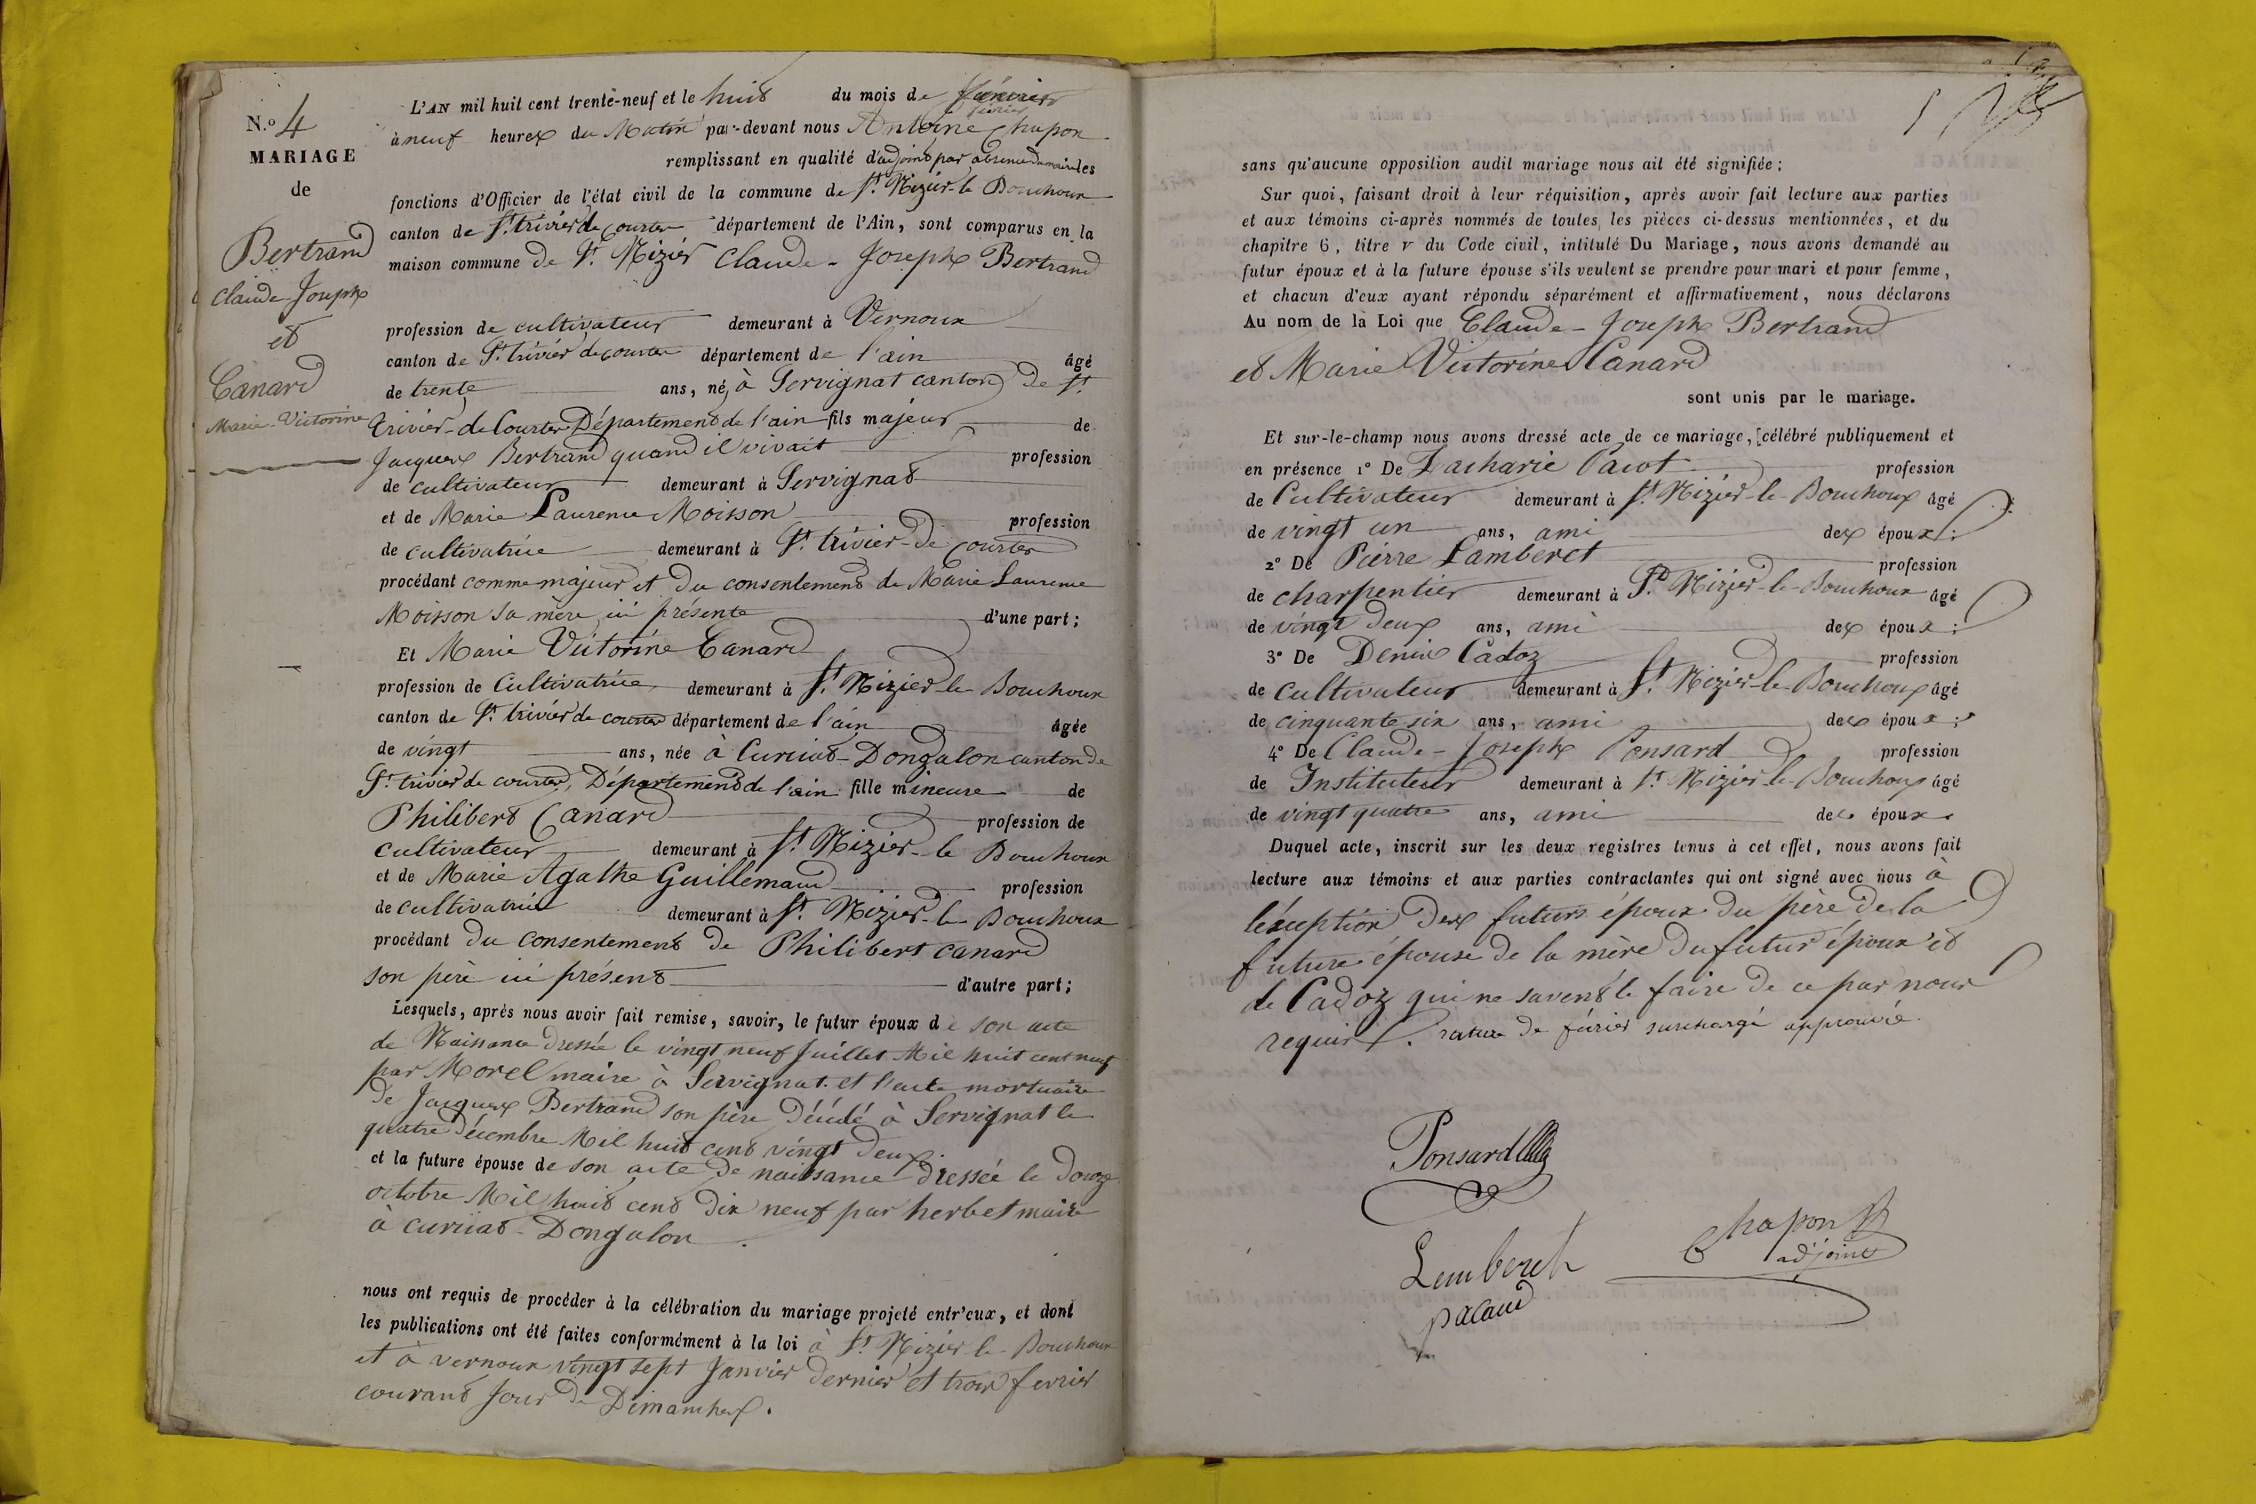 N.o 4
MARIAGE
de
Bertrand
Claude-Joseph
et
Canard
Marie-Victorine
L'AN mil huit cent trente-neuf et le huit du mois de février
février
à neuf heures du Matin par-devant nous Antoine Chapon
remplissant en qualité d'adjoint par absence du maire les
fonctions d'Officier de l'état civil de la commune de St Nizier-le Bouchoux
canton de St trivier de courtes département de l'Ain, sont comparus en la
maison commune de St Nizier Claude-Joseph Bertrand
profession de cultivateur demeurant à Vernoux
canton de St trivier de courtes département de l'ain âgé
de trente ans, né à Servignat canton de St
trivier-de Courtes Département de l'ain fils majeur de
Jacques Bertrand quand il vivait profession
de cultivateur demeurant à Servignat
et de Marie Laurence Moisson profession
de cultivatrice demeurant à St trivier-de courtes
procédant comme majeur et du consentement de Marie Laurence
Moisson sa mère ici présente d'une part;
Et Marie Victorine Canard
profession de Cultivatrice demeurant à St Nizier-le Bouchoux
canton de St trivier de courtes département de l'ain âgée
de vingt ans, née à Curciat-Dongalon canton de
St trivier de courtes, Département de l'ain fille mineure de
Philibert Canard profession de
cultivateur demeurant à St Nizier-le Bouchoux
et de Marie Agathe Guillemaud profession
de cultivatrice demeurant à St Nizier-le-Bouchoux
procédant du consentement de Philibert canard
son père ici présent d'autre part;
Lesquels, après nous avoir fait remise, savoir, le futur époux de son acte
de Naissance dressée le vingt neuf Juillet Mil huit cent neuf
par Morel maire à Servignat et l'acte mortuaire
de Jacques Bertrand son père Décédé à Servignat le
quatre décembre Mil huit cent vingt deux.
et la future épouse de son acte de naissance dressée le douze
octobre Mil huit cent dix neuf par herbet maire
à curciat-Dongalon.
nous ont requis de procéder à la célébration du mariage projeté entr'eux, et dont
les publications ont été faites conformément à la loi à St Nizier-le-Bouchoux
et à vernoux vingt sept Janvier dernier et trois fevrier
courant Jour de Dimanches.
sans qu'aucune opposition audit mariage nous ait été signifiée;
Sur quoi, faisant droit à leur réquisition, après avoir fait lecture aux parties
et aux témoins ci-après nommés de toutes les pièces ci-dessus mentionnées, et du
chapitre 6, titre v du Code civil, intitulé Du Mariage, nous avons demandé au
futur époux et à la future épouse s'ils veulent se prendre pour mari et pour femme,
et chacun d'eux ayant répondu séparément et affirmativement, nous déclarons
Au nom de la Loi que Claude-Joseph Bertrand
et Marie Victorine Canard
sont unis par le mariage.
Et sur-le-champ nous avons dressé acte de ce mariage, célébré publiquement et
en présence 1° De Zacharie Pacot profession
de Cultivateur demeurant à St Nizier-le-Bouchoux âgé
de vingt un ans, ami des époux;
2° De Pierre Lamberet profession
de charpentier demeurant à St Nizier-le-Bouchoux âgé
de vingt deux ans, ami des époux;
3° De Denis Cadoz profession
de cultivateur demeurant à St Nizier-le-Bouchoux âgé
de cinquante six ans, ami des époux;
4° De Claude-Joseph Ponsard profession
de Instituteur demeurant à St Nizier-le-Bouchoux âgé
de vingt quatre ans, ami des époux.
Duquel acte, inscrit sur les deux registres tenus à cet effet, nous avons fait
lecture aux témoins et aux parties contractantes qui ont signé avec nous à
l'éxception des futurs époux du père de la
future épouse de la mère du futur époux et
de Cadoz qui ne savent le faire de ce par nous
requis. rature de février surchargé approuvé.
Ponsard
Lamberet
Chapon
adjoint
pacaud